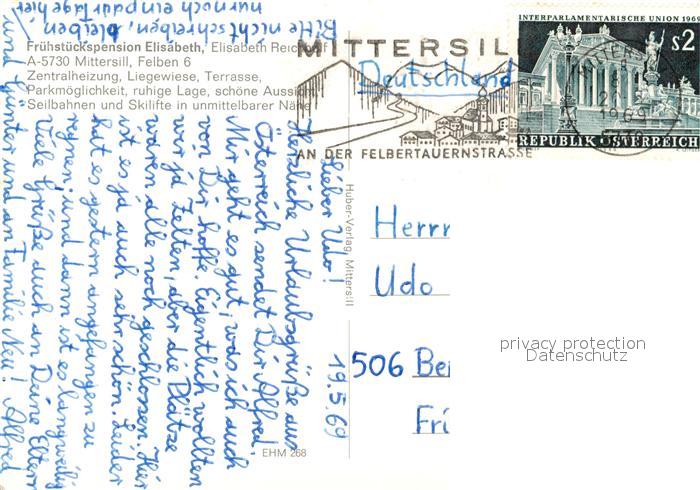 Bitte nicht schreiben, bleiben
nur noch ein paar Tage hier
Frühstückspension Elisabeth, Elisabeth
A-5730 Mittersill, Felben 6
Zentralheizung, Liegewiese, Terrasse,
Parkmöglichkeit, ruhige Lage, schöne
Seilbahnen und Skilifte in unmittelbarer Nähe
MITTERSILL
AN DER FELBERTAUERNSTRASSE
Deutschland
INTERPARLAMENTARISCHE UNION 1969
S2
REPUBLIK ÖSTERREICH
19.5.69
Lieber Udo!
Herzliche Urlaubsgrüße aus
Österreich sendet Dir Alfred.
Mir geht es gut, was ich auch
von Dir hoffe. Eigentlich wollten
wir ja Zelten, aber die Plätze
waren alle noch geschlossen. Hier
ist es ja auch sehr schön. Leider
hat es gestern angefangen zu
regnen; und dann ist es langweilig
Viele Grüße auch an Deine Eltern
und Günter und an Familie Neu! Alfred
Huber-Verlag, Mittersill
EHM 268
Herrn
Udo
506 Be
Fri
privacy protection
Datenschutz